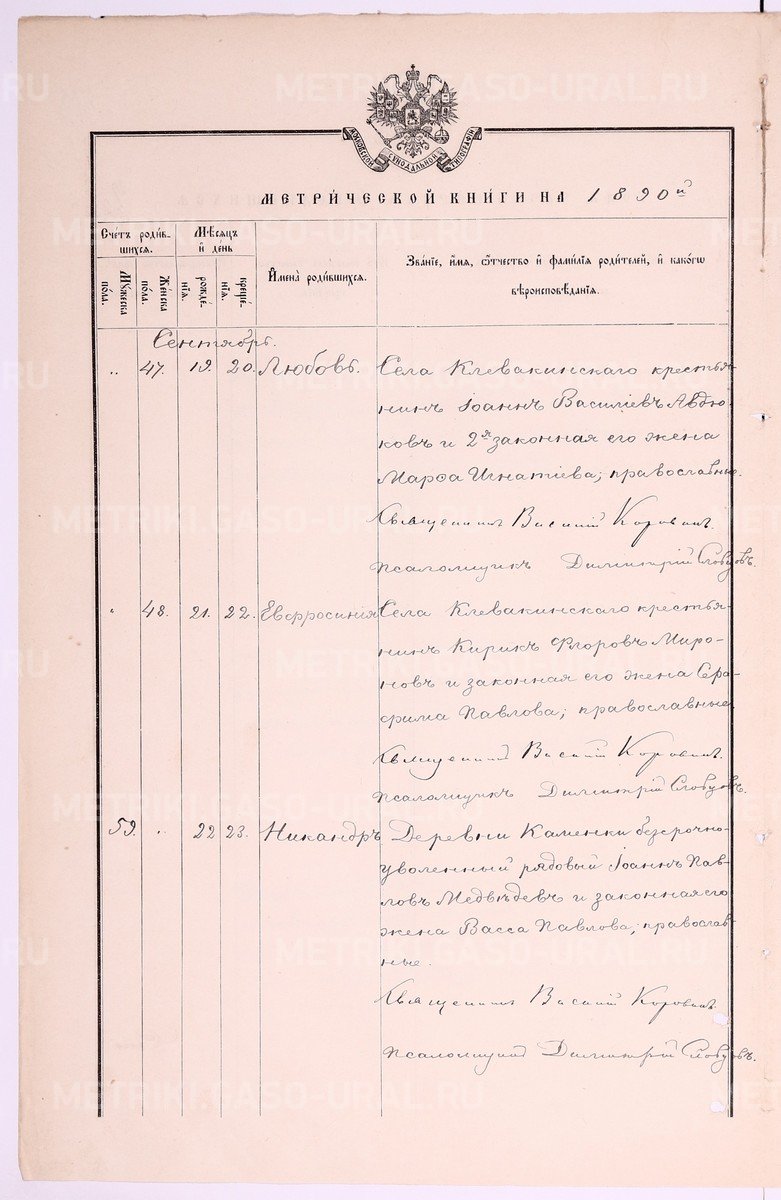 МОСКОВСКОЙ СѴНОДАЛЬНОЙ ТИПОГРАФІИ
МЕТРИ́ЧЕСКОЙ КНИ́ГИ НА 1890й
Сче́тъ роди́в-
шихся.
Му́жеска
по́ла.
Же́нска
по́ла.
Мѣ́сяцъ
и҆ де́нь
рожде́-
нїя.
креще́-
нїя.
И҆мена̀ роди́вшихся.
Зва́нїе, и҆́мя, ѻ҆́тчество и҆ фамилїя роди́телей, и҆ како́гѡ
вѣроисповѣ́данїя.
Сентябрь.
„ 47. 19. 20. Любовь. Села Клевакинскаго крестья-
нинъ Іоаннъ Василіевъ Авдю-
ковъ и 2я законная его жена
Марѳа Игнатіева; православные.
Священникъ Василій Коровинъ.
псаломщикъ Димитрій Словцовъ.
„ 48. 21. 22. Евфросинія Села Клевакинскаго крестья-
нинъ Кирикъ Флоровъ Миро-
новъ и законная его жена Сера-
фима Павлова; православные.
Священникъ Василій Коровинъ.
псаломщикъ Димитрій Словцовъ.
59. „ 22 23. Никандръ Деревни Каменки безсрочно-
уволенный рядовый Іоаннъ Пав-
ловъ Медвѣдевъ и законная его
жена Васса Павлова; православ-
ные.
Священникъ Василій Коровинъ
псаломщикъ Димитрій Словцовъ.
METRIKI.GASO-URAL.RU